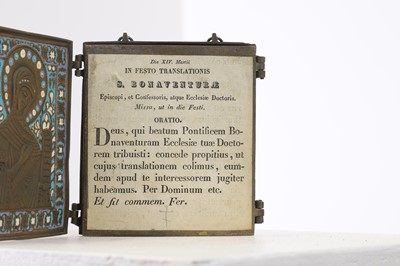 Die XIV. Martii
IN FESTO TRANSLATIONIS
S. BONAVENTURÆ
Episcopi, et Confessoris, atque Ecclesiæ Doctoris.
Missa, ut in die Festi.
ORATIO.
Deus, qui beatum Pontificem Bo-
naventuram Ecclesiæ tuæ Docto-
rem tribuisti: concede propitius, ut
cujus translationem colimus, eum-
dem apud te intercessorem jugiter
habeamus. Per Dominum etc.
Et fit commem. Fer.